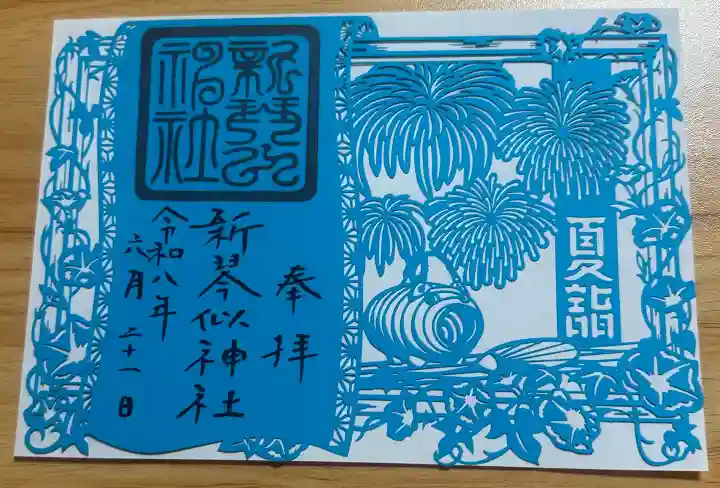 夏詣
奉拝
新琴似神社
令和八年
六月二十一日
新琴似
神社